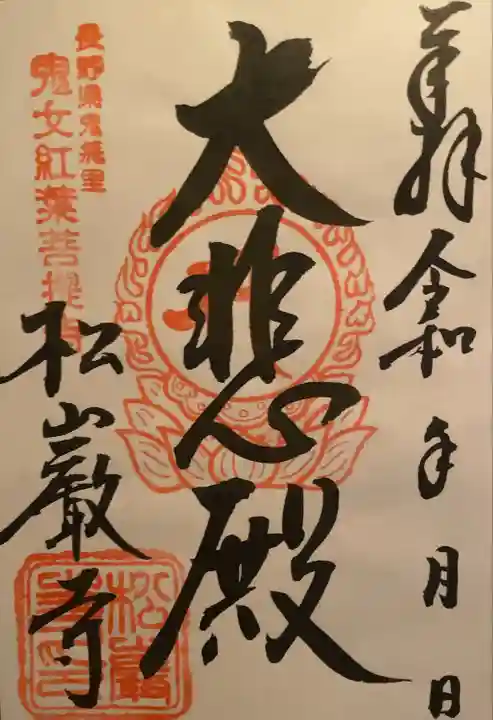 奉拝
令和 年 月 日
大悲殿
長野県鬼無里
鬼女紅葉菩提寺
松巖寺